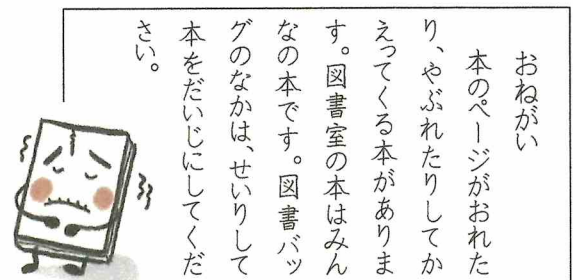 おねがい
本のページがおれた
り、やぶれたりしてか
えってくる本がありま
す。図書室の本はみん
なの本です。図書バッ
グのなかは、せいりして
本をだいじにしてくだ
さい。